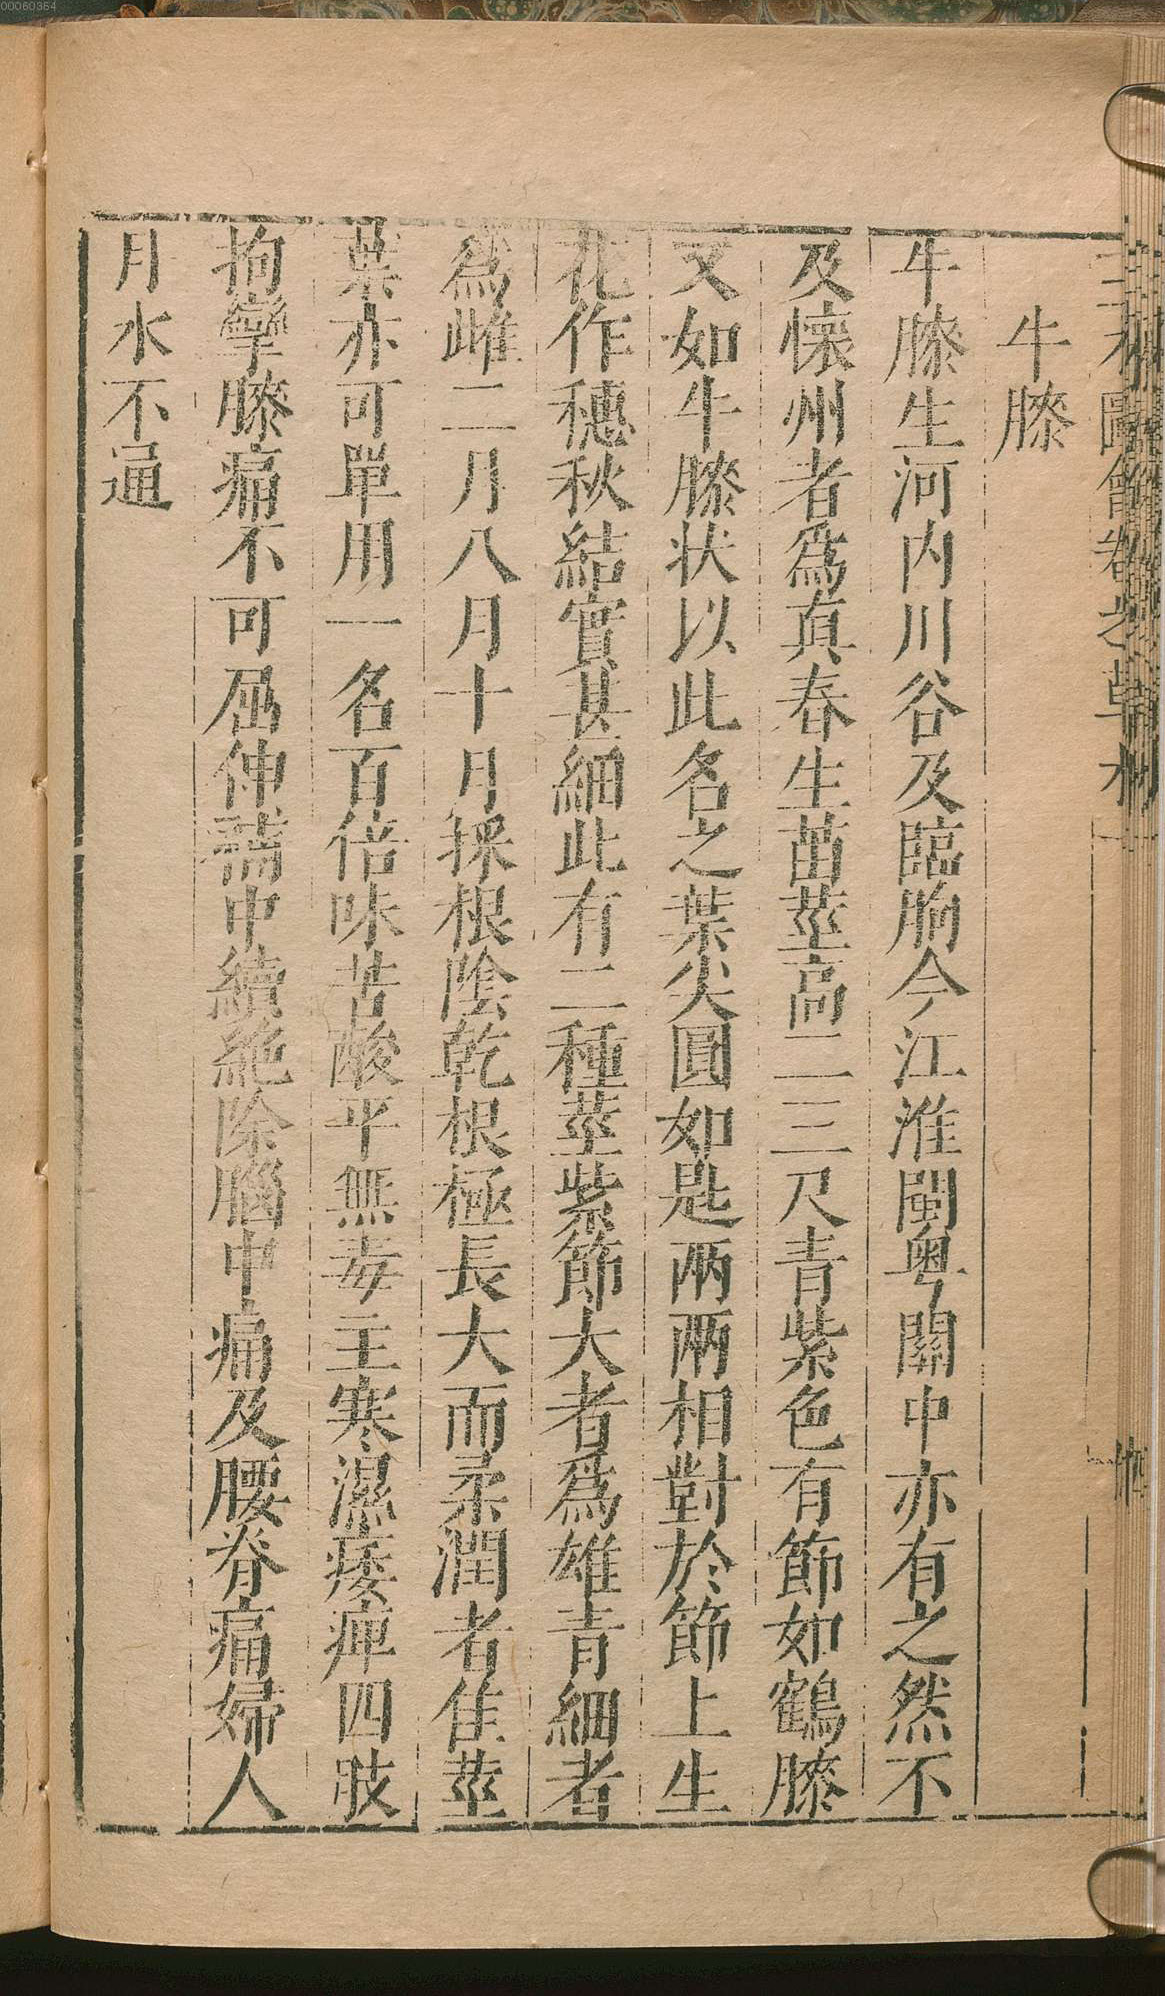 00060354
牛膝
牛膝生河內川谷及臨朐今江淮閩粤關中亦有之然不
及懷州者爲真春生苗莖高二三尺青紫色有節如鶴膝
又如牛膝状以此名之葉尖圓如匙兩兩相對於節上生
花作穗秋結實甚細此有二種莖紫節大者爲雄青細者
爲雌二月八月十月採根陰乾根極長大而柔潤者佳莖
葉亦可單用一名百倍味苦酸平無毒主寒濕痿痺四肢
拘攣膝痛不可屈伸補中續絶除腦中痛及腰脊痛婦人
月水不通